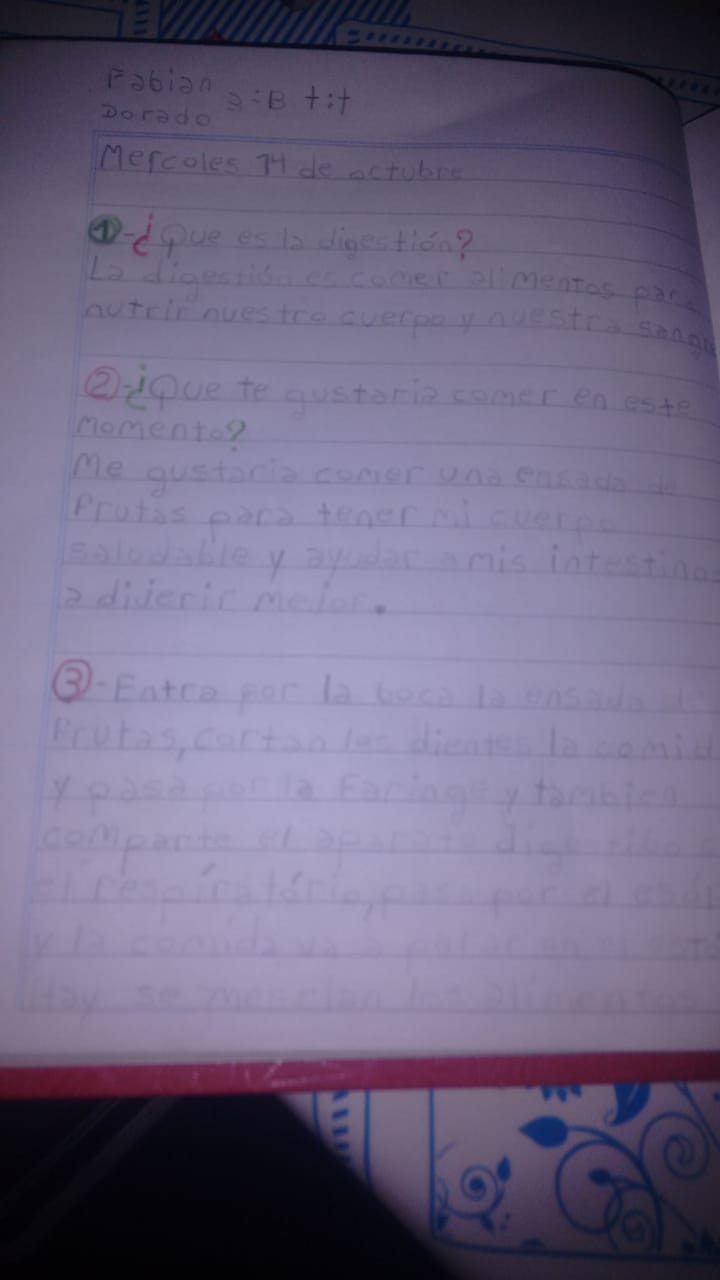 Fabian 3:B t:t
Dorado
Mercoles 14 de octubre
1-¿Que es la digestión?
La digestión es comer alimentos para
nutrir nuestro cuerpo y nuestra
2-¿Que te gustaria comer en este
momento?
Me gustaria comer una ensada de
Frutas para tener mi cuerpo
saludable y ayudar a mis intestinos
a dijerir mejor.
3-Entra por la boca la ensada de
Frutas, cortan los dientes la
y pasa por la Faringe y tambien
comparte el aparato
el respiratório, pasa por el
y la comida va a parar en el
Hay se mesclan los alimentos